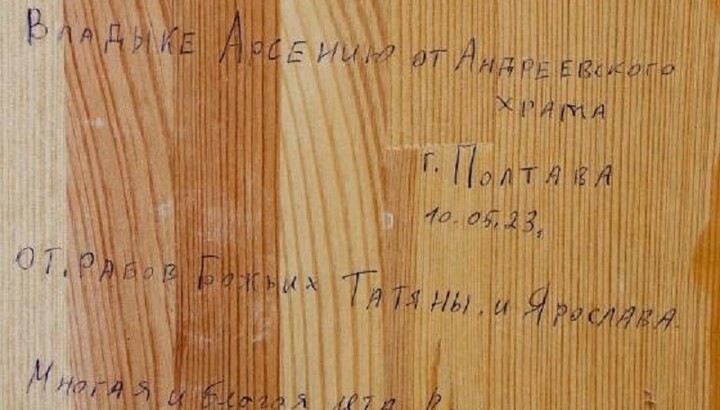 Владыке Арсению от Андреевского
храма
г. Полтава
10.05.23,
от. рабов Божьих Татяны. и Ярослава.
Многая и благая лета